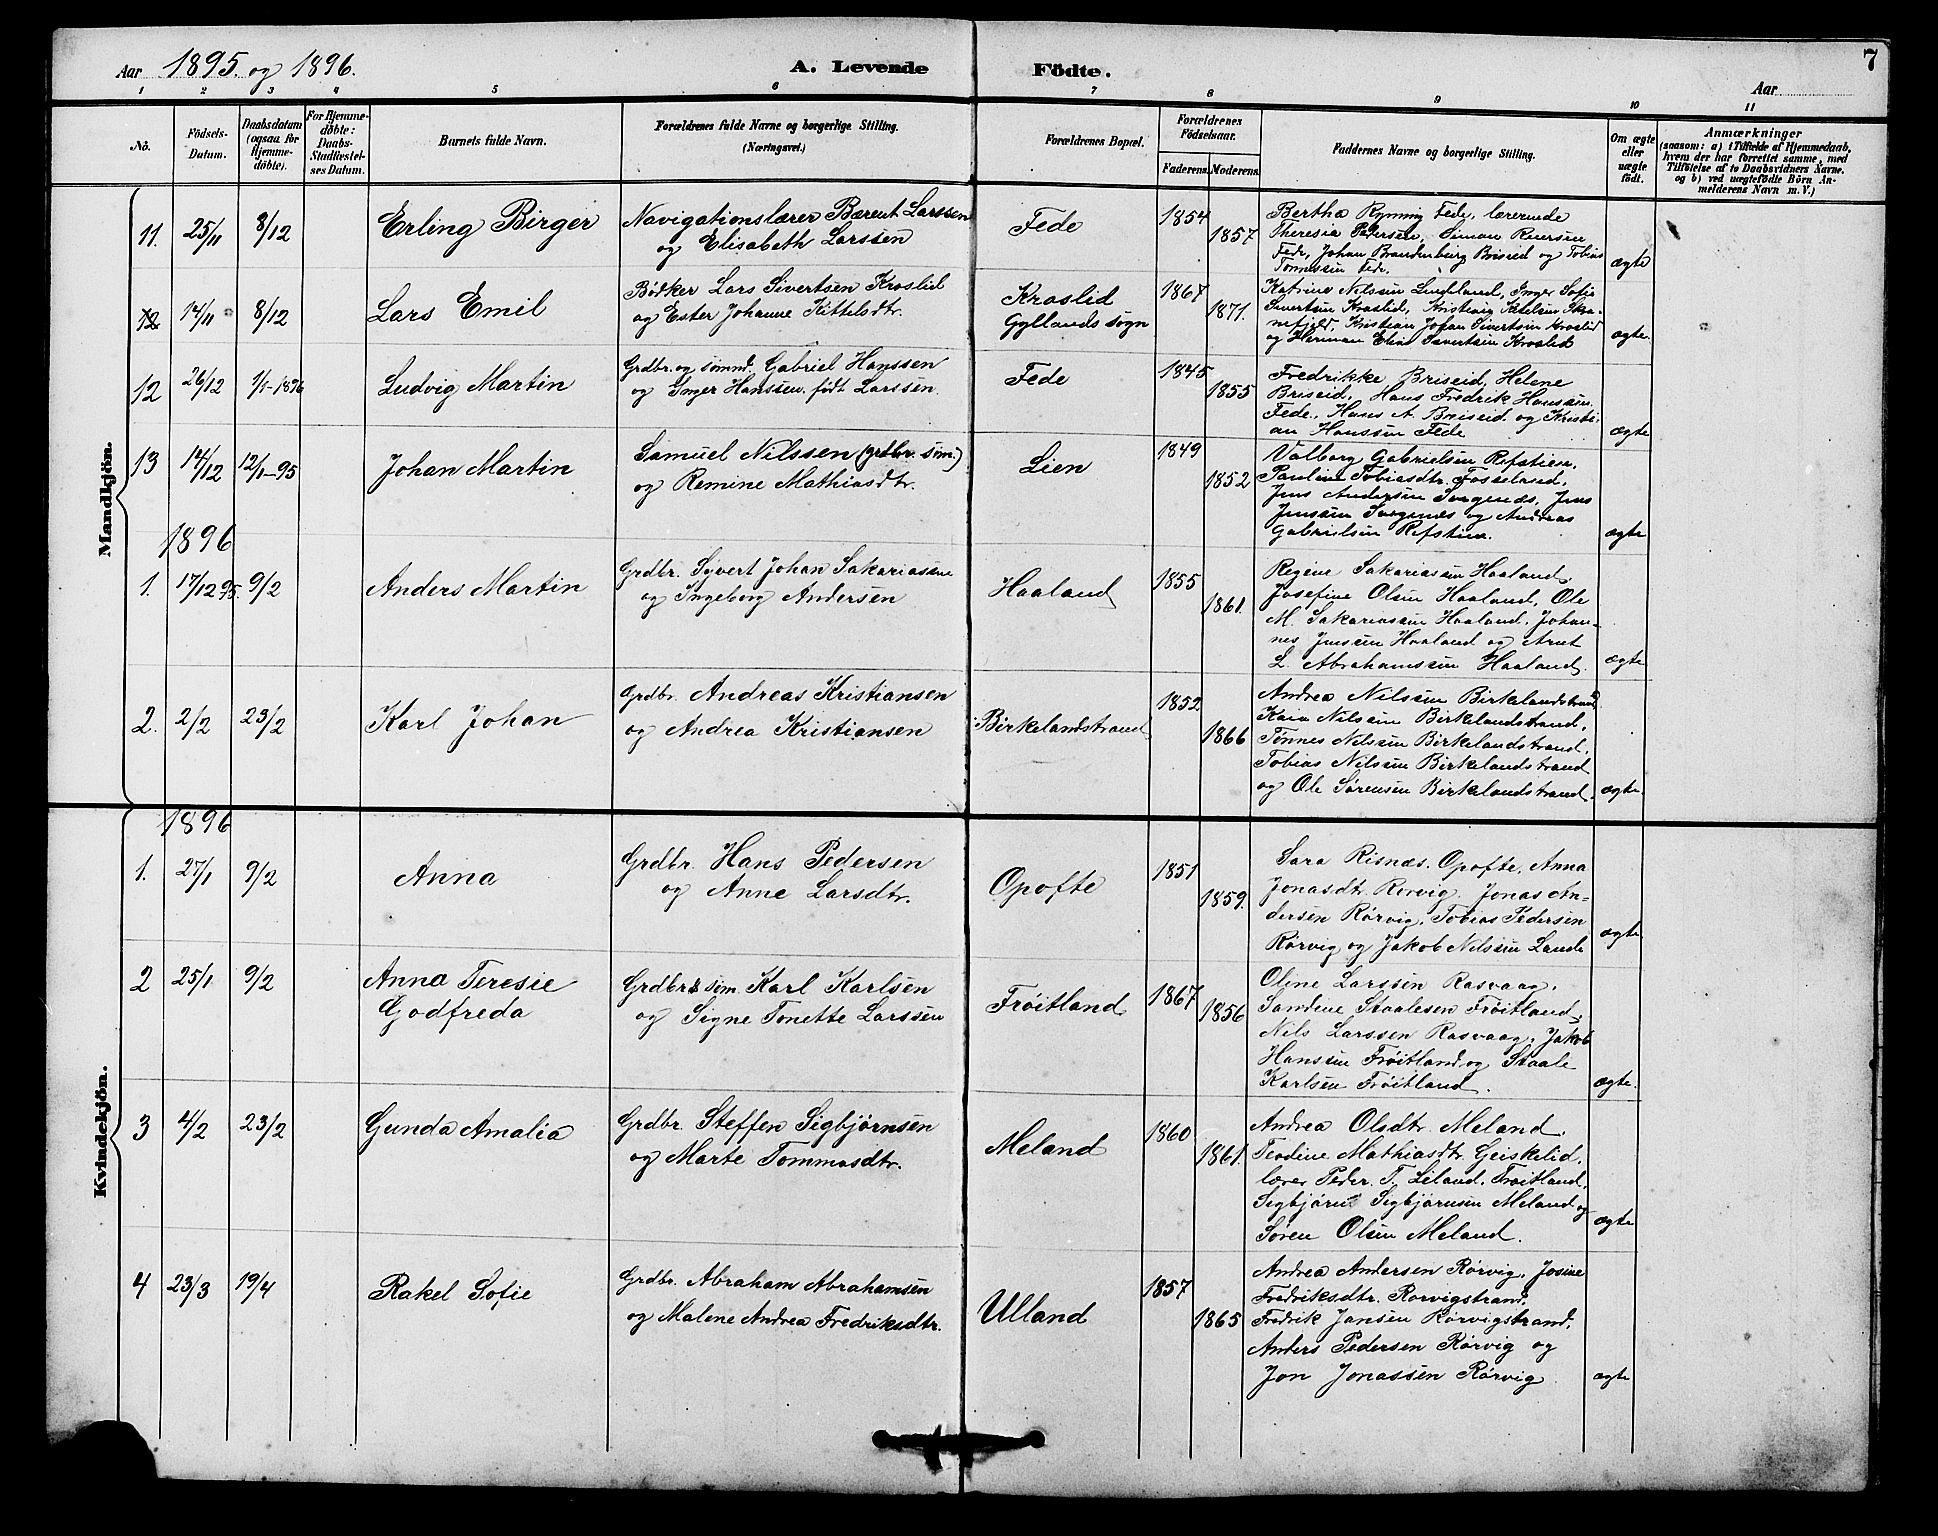 Aar 1895. og 1896.
A. Levende Födte.
Aar
7
1 2 3 4 5 6 7 8 9 10 11
No.
Födsels-Datum.
Daabsdatum (ogsaa for Hjemme-döbte).
For Hjemme-döbte: Daabs-Stadfæstel-ses Datum.
Barnets fulde Navn.
Forældrenes fulde Navne og borgerlige Stilling.
(Næringsvei.)
Forældrenes Bopæl.
Forældrenes Födselsaar.
Faderens. Moderens.
Faddernes Navne og borgerlige Stilling.
Om ægte eller uægte födt.
Anmærkninger
(saasom: a) i Tilfælde af Hjemmedaab,
hvem der har forrettet samme, med
Tilföielse af to Daabsvidners Navne,
og b) ved uægtefödte Börn An-
melderens Navn m. V.)
Mandkjön.
11. 25/11 8/12 Erling Birger
Navigationslærer Bærent Larssen
og Elisabeth Larssen
Fede
1854
1857
Bertha Rynning Fede, lærerinde
Theresia Pedersen, Simon
Fede, Johan Brandenburg Briseid og Tobias
Tønnessen Fede.
ægte
12 14/11 8/12 Lars Emil
Bødker Lars Sivertsen Kroslid
og Ester Johanne Kittelsdtr.
Kroslid
Gyllands sogn
1867
1871.
Katrine Nilssen Lindland, Inger Sofie
Sivertsen Kroslid, Kristian Kitelsen Skra-
nefjeld, Kristian Johan Sivertsen Kroslid
og Herman Elias Sivertsen Kroslid
ægte.
12 26/12 1/1-1896 Ludvig Martin
Grdbr. og sømd. Gabriel Hanssen
og Inger Hanssen født Larssen.
Fede
1845
1855
Fredrikke Briseid, Helene
Briseid, Hans Fredrik Hanssen
Fede, Hans A. Briseid og Kristi-
an Hanssen Fede
ægte
13 14/12 12/1-95 Johan Martin
Samuel Nilssen (grdbr. søm.)
og Remine Mathiasdtr.
Lien
1849
1852
Valborg Gabrielsen Refstien,
Pauline Tobiasdtr. Fosseland,
Jens Andersen Sorgenæs, Jens
Jenssen Sorgenæs og Andreas
Gabrielsen Refstien.
ægte
1896
1. 17/12 95. 9/2 Anders Martin
Grdbr. Syvert Johan Sakariassen
og Ingeborg Andersen
Haaland
1855
1861.
Regine Sakariassen Haaland,
Josefine Olsen Haaland, Ole
M. Sakariassen Haaland, Johan-
nes Jenssen Haaland og Arnt
L. Abrahamssen Haaland.
ægte
2. 2/2 23/2 Karl Johan
Grdbr. Andreas Kristiansen
og Andrea Kristiansen
Birkelandstrand
1852
1866
Andrea Nilsen Birkelandstrand
Kaia Nilsen Birkelandstrand,
Tønnes Nilssen Birkelandstrand,
Tobias Nilssen Birkelandstrand
og Ole Sørensen Birkelandstrand
ægte.
Kvindekjön.
1896
1. 27/1 9/2 Anna
Grdbr. Hans Pedersen
og Anne Larsdtr.
Opofte
1851
1859.
Sara Risnæs, Opofte, Anna
Jonasdtr. Rørvig, Jonas An-
dersen Rörvig, Tobias Pedersen
Rörvig og Jakob Nilssen Lande
ægte.
2 25/1 9/2 Anna Teresie
Godfreda
Grdbr & søm. Karl Karlsen
og Signe Tonette Larssen
Frøitland
1867
1856
Oline Larssen Rasvaag,
Sandine Staalesen Frøitland,
Nils Larssen Rasvaag, Jakob
Hanssen Frøitland og Staale
Karlsen Frøitland.
ægte.
3 4/2 23/2 Gunda Amalia
Grdbr. Steffen Sigbjørnsen
og Marte Tommasdtr.
Meland
1860
1861.
Andrea Olsdtr. Meland,
Teodine Mathiasdtr. Geiskelid,
lærer Peder. T. Liland, Frøitland,
Sigbjørn Sigbjørnsen Meland og
Søren Olsen Meland.
ægte
4 23/3 19/4 Rakel Sofie
Grdbr. Abraham Abrahamsen
og Malene Andrea Fredriksdtr.
Ulland
1857
1865
Andrea Andersen Rørvig, Josine
Fredriksdtr. Rørvigstrand,
Fredrik Jansen Rørvigstrand,
Anders Pedersen Rørvig og
Jon Jonassen Rørvig.
ægte